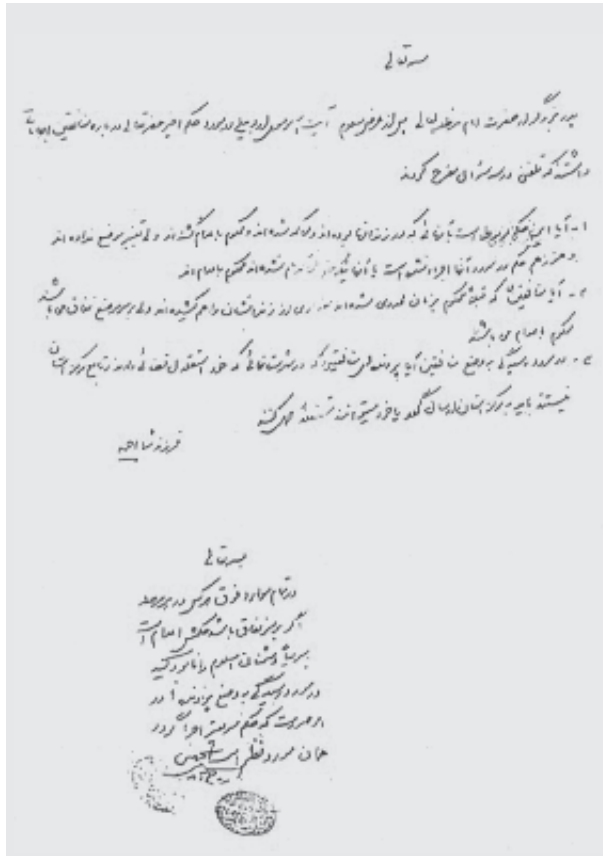 بسمه تعالی
پدر بزرگوار حضرت امام مدظله العالی پس از عرض سلام آیت الله موسوی اردبیلی در مورد حکم اخیر حضرتعالی درباره منافقین ابهاماتی
داشته‌اند که تلفنی در سه سؤال مطرح کردند
۱ - آیا این حکم مربوط است به آنهائی که در زندانها بوده‌اند و محاکمه شده‌اند و محکوم به اعدام گشته‌اند ولی تغییر موضع نداده‌اند
و هنوز هم حکم در مورد آنها اجرا نشده است یا آنهائیکه حتی محاکمه هم نشده‌اند محکوم به اعدام‌اند
۲ - آیا منافقین که قبلاً محکوم به زندان محدود شده‌اند و مقداری از زندانشان را هم کشیده‌اند ولی بر سر موضع نفاق می‌باشند
محکوم به اعدام می‌باشند
۳ - در مورد رسیدگی به وضع منافقین آیا پرونده‌های منافقینی که در شهرستانهائی که خود استقلال قضائی دارند و تابع مرکز استان
نیستند باید به مرکز استان ارسال گردد یا خود میتوانند مستقلاً عمل کنند
فرزند شما احمد
بسمه تعالی
در تمام موارد فوق هر کس در هر مرحله
اگر بر سر نفاق باشد حکمش اعدام است
سریعاً دشمنان اسلام را نابود کنید
در مورد رسیدگی به وضع پرونده‌ها در
هر صورت که حکم سریعتر اجرا گردد
همان مورد نظر است